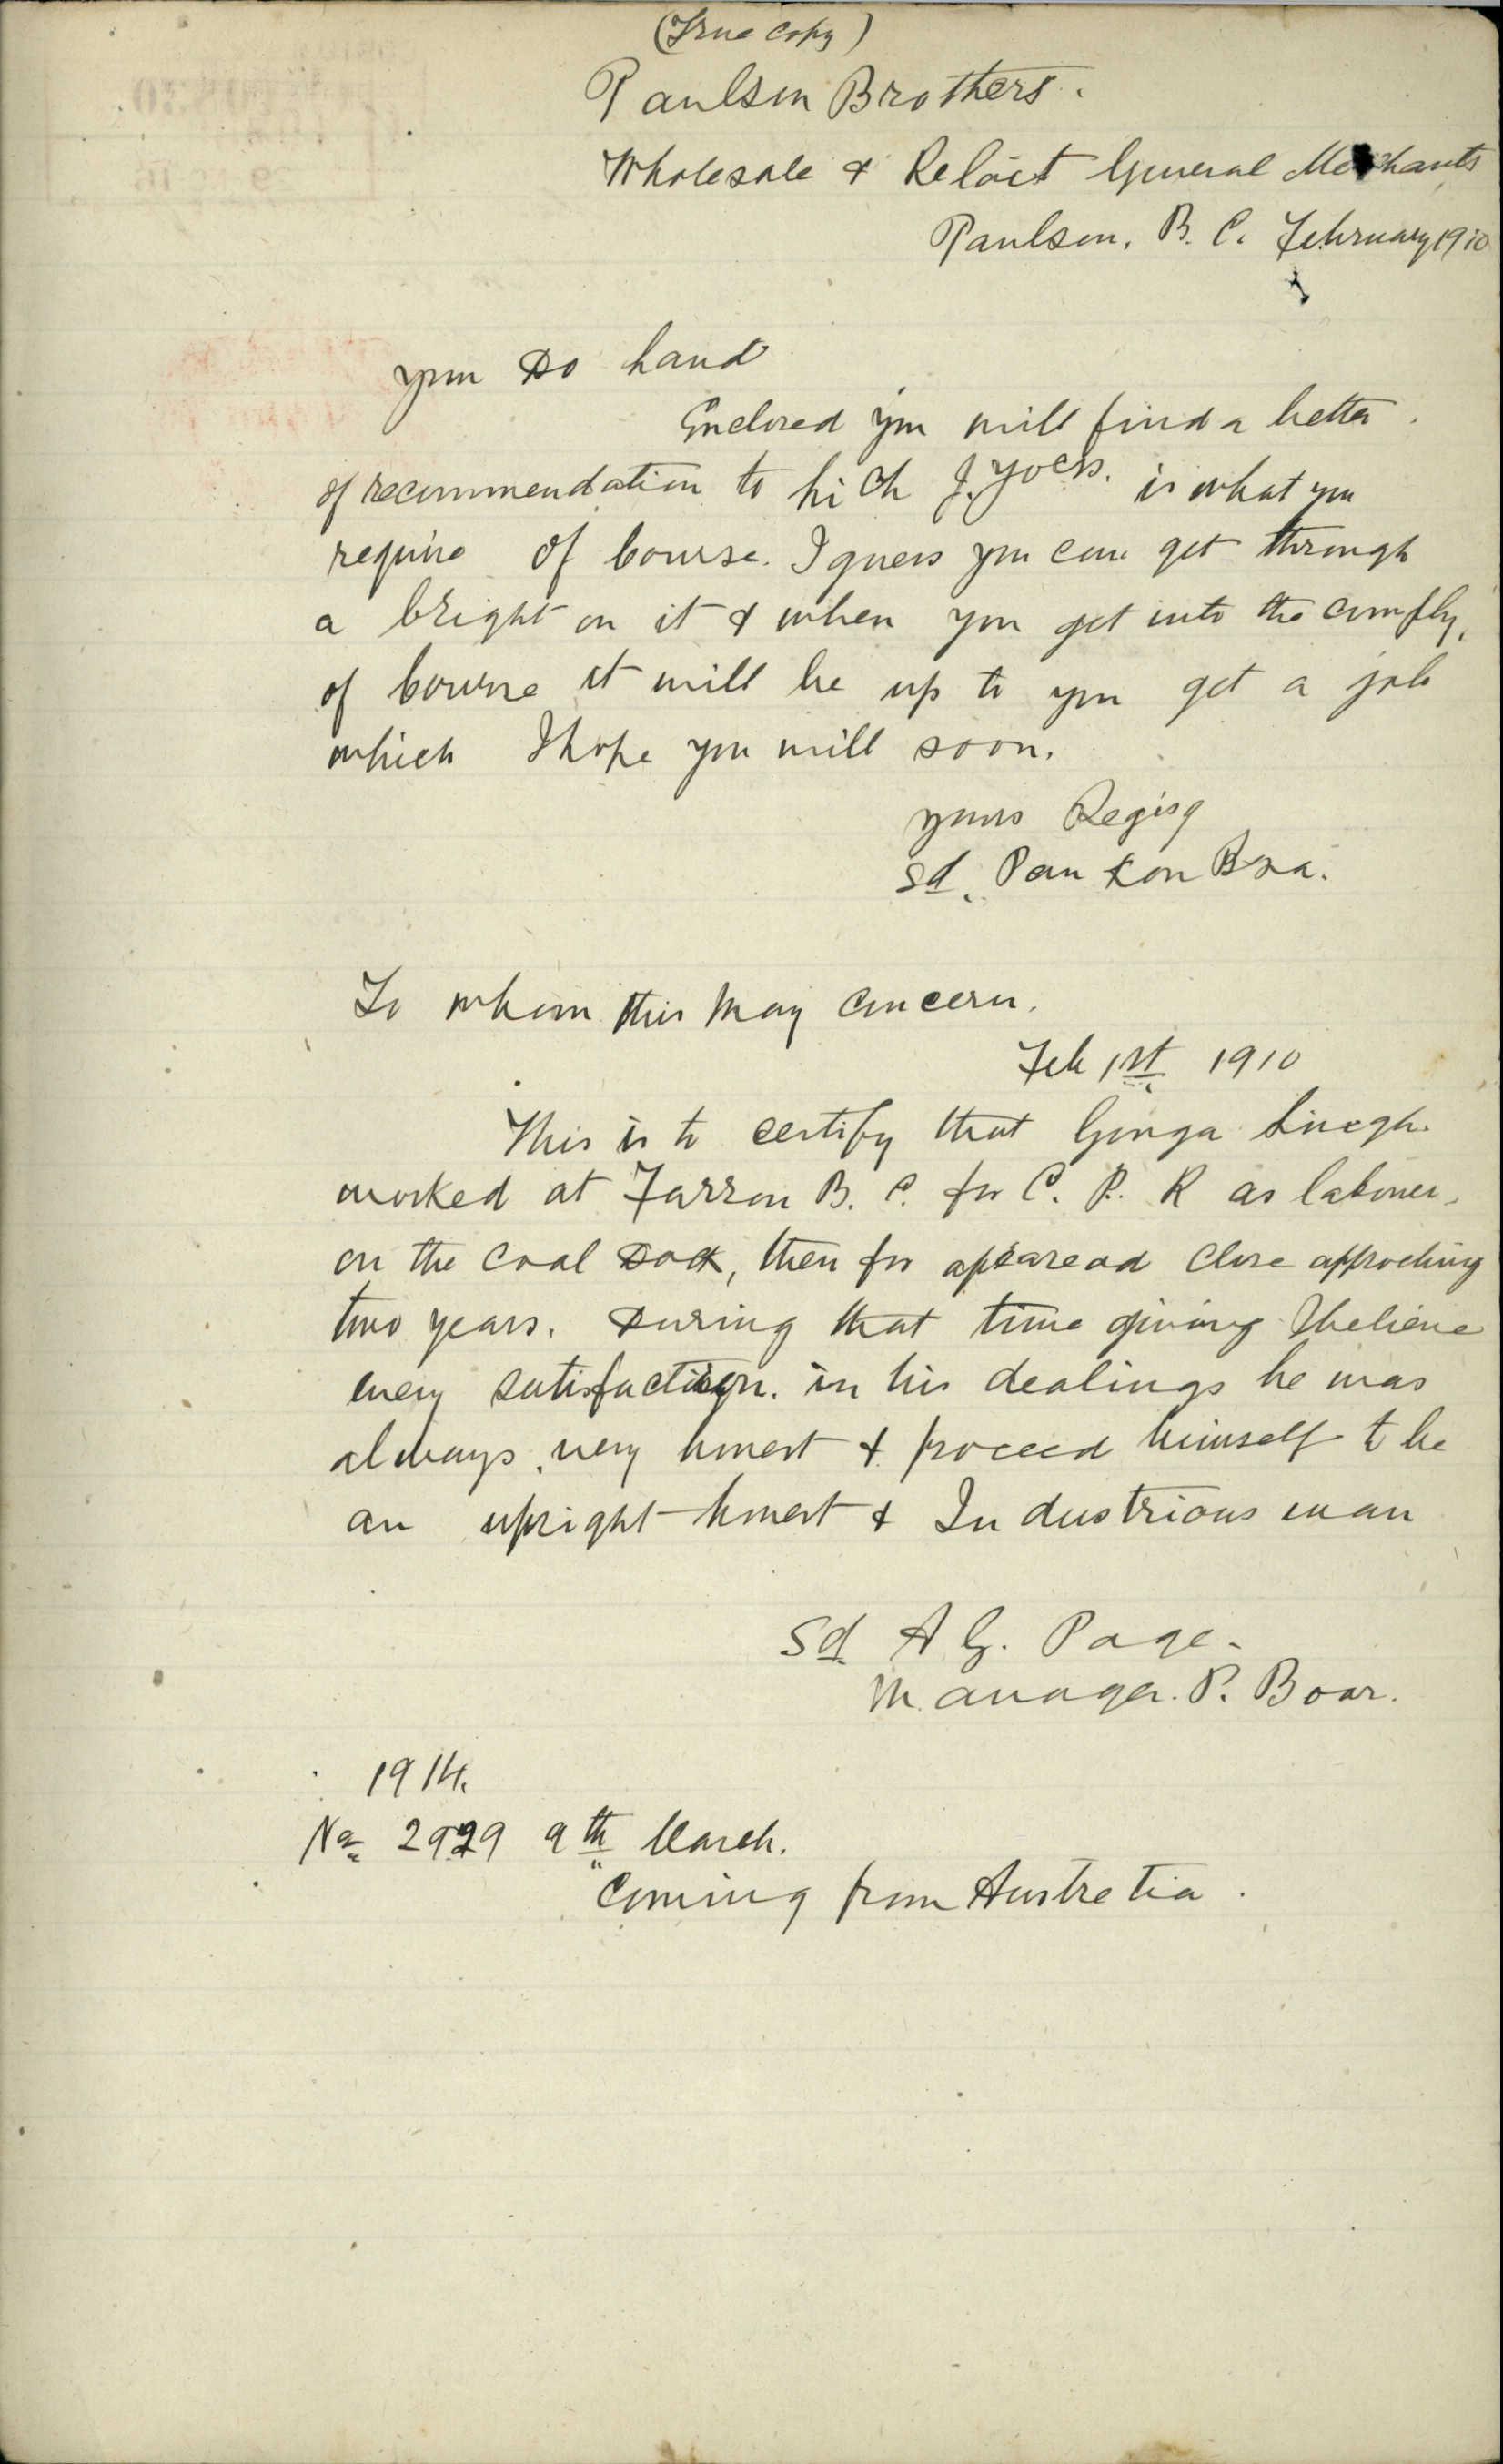 (True Copy)
Paulson Brothers.
Wholesale & Relait General Merchants
Paulson. B. C. February 1910
your do hand
Enclosed you will find a letter
of recommendation to hich J. is what you
require of course. I guess you can get through
a bright on it & when you get into the
of course it will be up to you get a job
which I hope you will soon.
yours
Sd. Paul son Bra.
To whom this may concern.
Feb 1st 1910
This is to certify that Ganga Singh
worked at Farron B. C. for C. P. R as labourer
on the coal dock, then for close approching
two years. During that time giving I believe
every satisfaction. in his dealings he was
always very honest & proceed himself to be
an upright honest & Industrious man
Sd A G. Page.
Manager. P. Boar.
1914.
No 2929 9th March.
Coming from Austretia.